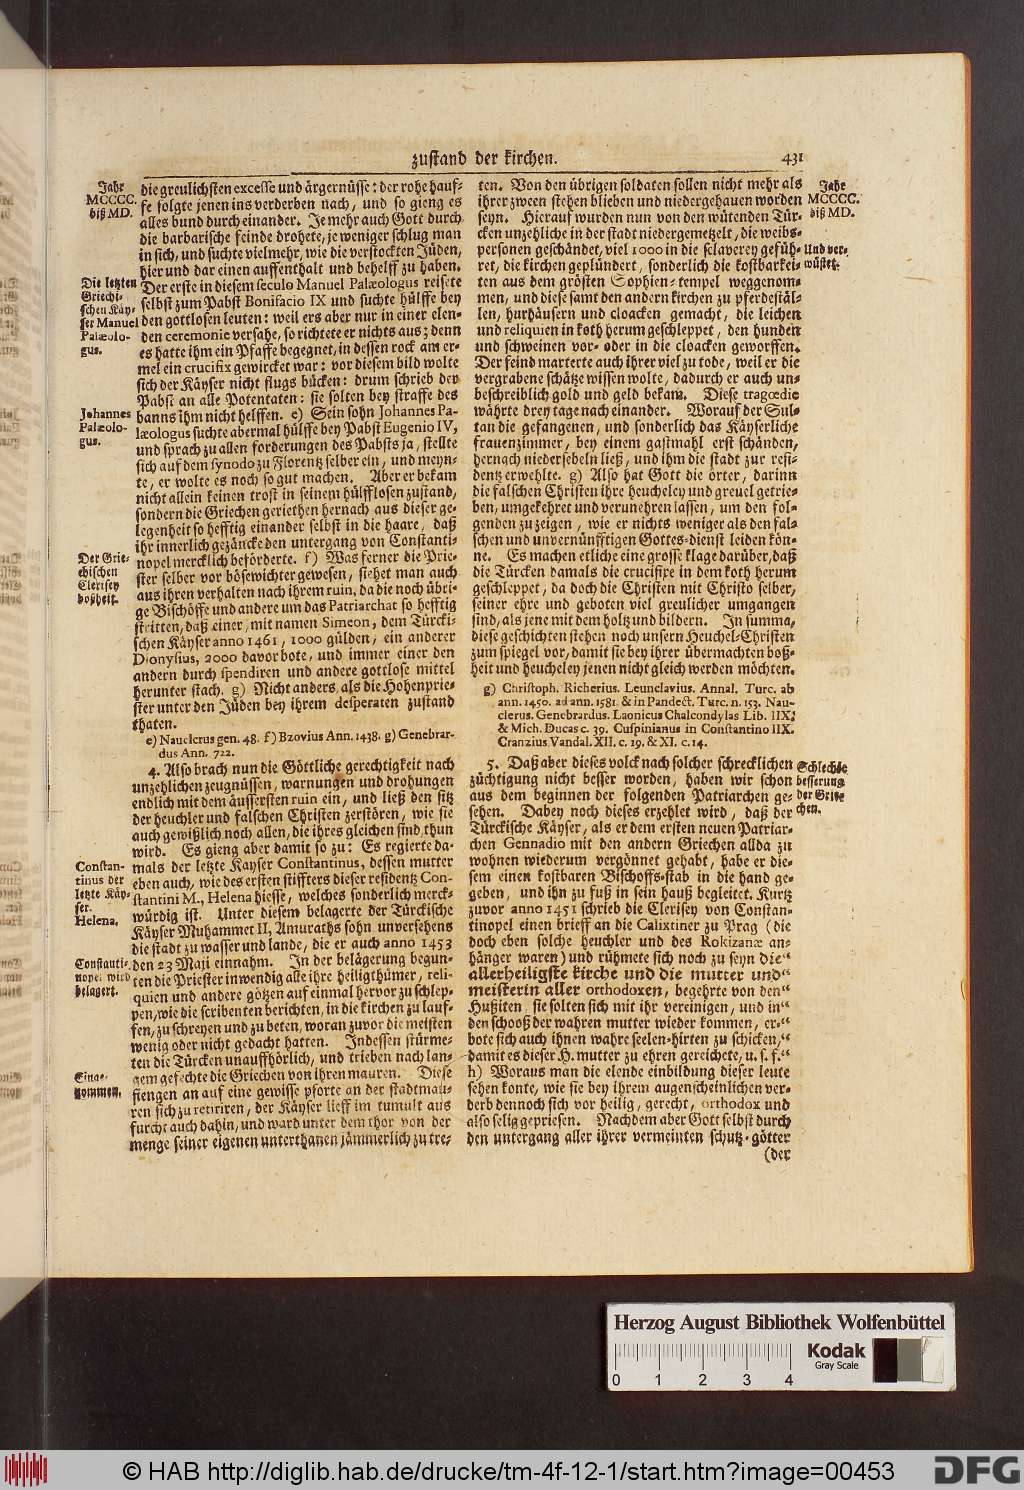 zustand der kirchen.
431
Jahr
MCCCC.
biß MD.
die greulichsten excesse und ärgernüsse: der rohe hauf-
fe folgte jenen ins verderben nach, und so gieng es
alles bund durch einander. Je mehr auch Gott durch
die barbarische feinde drohete, je weniger schlug man
in sich, und suchte vielmehr, wie die verstockten Jüden,
hier und dar einen auffenthalt und behelff zu haben.
Die letzten
Griechi-
schen Käy-
ser Manuel
Palæolo-
gus.
Der erste in diesem seculo Manuel Palæologus reisete
selbst zum Pabst Bonifacio IX und suchte hülffe bey
den gottlosen leuten: weil ers aber nur in einer elen-
den ceremonie versahe, so richtete er nichts aus; denn
es hatte ihm ein Pfaffe begegnet, in dessen rock am er-
mel ein crucifix gewircket war: vor diesem bild wolte
sich der Käyser nicht flugs bücken: drum schrieb der
Pabst an alle Potentaten: sie solten bey straffe des
Johannes
Palæolo-
gus.
banns ihm nicht helffen. e) Sein sohn Johannes Pa-
læologus suchte abermal hülffe bey Pabst Eugenio IV,
und sprach zu allen forderungen des Pabsts ja, stellte
sich auf dem synodo zu Florentz selber ein, und meyn-
te, er wolte es noch so gut machen. Aber er bekam
nicht allein keinen trost in seinem hülfflosen zustand,
sondern die Griechen geriethen hernach aus dieser ge-
legenheit so hefftig einander selbst in die haare, daß
ihr innerlich gezäncke den untergang von Constanti-
Der Grie-
chischen
Clerisey
boßheit.
nopel mercklich beförderte. f) Was ferner die Prie-
ster selber vor bösewichter gewesen, siehet man auch
aus ihren verhalten nach ihrem ruin, da die noch übri-
ge Bischöffe und andere um das Patriarchat so hefftig
stritten, daß einer, mit namen Simeon, dem Türcki-
schen Käyser anno 1461, 1000 gülden, ein anderer
Dionysius, 2000 davor bote, und immer einer den
andern durch spendiren und andere gottlose mittel
herunter stach. g) Nicht anders, als die Hohenprie-
ster unter den Jüden bey ihrem desperaten zustand
thaten.
e) Nauclerus gen. 48. f) Bzovius Ann. 1438. g) Genebrar-
dus Ann. 722.
4. Also brach nun die Göttliche gerechtigkeit nach
unzehlichen zeugnüssen, warnungen und drohungen
endlich mit dem äussersten ruin ein, und ließ den sitz
der heuchler und falschen Christen zerstören, wie sie
auch gewißlich noch allen, die ihres gleichen sind, thun
wird. Es gieng aber damit so zu: Es regierte da-
Constan-
tinus der
letzte Käy-
ser.
Helena.
mals der letzte Kayser Constantinus, dessen mutter
eben auch, wie des ersten stiffters dieser residentz Con-
stantini M., Helena hiesse, welches sonderlich merck-
würdig ist. Unter diesem belagerte der Türckische
Käyser Muhammet II, Amuraths sohn unversehens
die stadt zu wasser und lande, die er auch anno 1453
Constanti-
nopel wird
belagert.
den 23 Maji einnahm. In der belägerung begun-
ten die Priester inwendig alle ihre heiligthümer, reli-
quien und andere götzen auf einmal hervor zu schlep-
pen, wie die scribenten berichten, in die kirchen zu lauf-
fen, zu schreyen und zu beten, woran zuvor die meisten
wenig oder nicht gedacht hatten. Indessen stürme-
ten die Türcken unauffhörlich, und trieben nach lan-
Einge-
nommen.
gem gefechte die Griechen von ihren mauren. Diese
fiengen an auf eine gewisse pforte an der stadtmau-
ren sich zu retiriren, der Käyser lieff im tumult aus
furcht auch dahin, und ward unter dem thor von der
menge seiner eigenen unterthanen jämmerlich zu tre-
Jahr
MCCCC.
biß MD.
ten. Von den übrigen soldaten sollen nicht mehr als
ihrer zween stehen blieben und niedergehauen worden
seyn. Hierauf wurden nun von den wütenden Tür-
cken unzehliche in der stadt niedergemetzelt, die weibs-
Und ver-
wüstet.
personen geschändet, viel 1000 in die sclaverey gefüh-
ret, die kirchen geplündert, sonderlich die kostbarkei-
ten aus dem grösten Sophien-tempel weggenom-
men, und diese samt den andern kirchen zu pferdestäl-
len, hurhäusern und cloacken gemacht, die leichen
und reliquien in koth herum geschleppet, den hunden
und schweinen vor- oder in die cloacken geworffen.
Der feind marterte auch ihrer viel zu tode, weil er die
vergrabene schätze wissen wolte, dadurch er auch un-
beschreiblich gold und geld bekam. Diese tragœdie
währte drey tage nach einander. Worauf der Sul-
tan die gefangenen, und sonderlich das Käyserliche
frauenzimmer, bey einem gastmahl erst schänden,
hernach niedersebeln ließ, und ihm die stadt zur resi-
dentz erwehlte. g) Also hat Gott die örter, darinn
die falschen Christen ihre heucheley und greuel getrie-
ben, umgekehret und verunehren lassen, um den fol-
genden zu zeigen, wie er nichts weniger als den fal-
schen und unvernünfftigen Gottes-dienst leiden kön-
ne. Es machen etliche eine grosse klage darüber, daß
die Türcken damals die crucifixe in dem koth herum
geschleppet, da doch die Christen mit Christo selber,
seiner ehre und geboten viel greulicher umgangen
sind, als jene mit dem holtz und bildern. In summa,
diese geschichten stehen noch unsern Heuchel-Christen
zum spiegel vor, damit sie bey ihrer übermachten boß-
heit und heucheley jenen nicht gleich werden möchten.
g) Christoph. Richerius. Leunclavius. Annal. Turc. ab
ann. 1450. ad ann. 1581. & in Pandect. Turc. n. 153. Nau-
clerus. Genebrardus. Laonicus Chalcondylas Lib. IIX.
& Mich. Ducas c. 39. Cuspinianus in Constantino IIX.
Cranzius Vandal. XII. c. 19. & XI. c. 14.
Schlechte
besserung
der Grie-
chen.
5. Daß aber dieses volck nach solcher schrecklichen
züchtigung nicht besser worden, haben wir schon
aus dem beginnen der folgenden Patriarchen ge-
sehen. Dabey noch dieses erzehlet wird, daß der
Türckische Käyser, als er dem ersten neuen Patriar-
chen Gennadio mit den andern Griechen allda zu
wohnen wiederum vergönnet gehabt, habe er die-
sem einen kostbaren Bischoffs-stab in die hand ge-
geben, und ihn zu fuß in sein hauß begleitet. Kurtz
zuvor anno 1451 schrieb die Clerisey von Constan-
tinopel einen brieff an die Calixtiner zu Prag (die
doch eben solche heuchler und des Rokizanæ an-
hänger waren) und rühmete sich noch zu seyn die“
allerheiligste kirche und die mutter und“
meisterin aller orthodoxen, begehrte von den“
Hußiten, sie solten sich mit ihr vereinigen, und in“
den schooß der wahren mutter wieder kommen, er-“
bote sich auch ihnen wahre seelen-hirten zu schicken,“
damit es dieser H. mutter zu ehren gereichete, u. s. f.“
h) Woraus man die elende einbildung dieser leute
sehen konte, wie sie bey ihrem augenscheinlichen ver-
derb dennoch sich vor heilig, gerecht, orthodox und
also selig gepriesen. Nachdem aber Gott selbst durch
den untergang aller ihrer vermeinten schutz-götter
(der
Herzog August Bibliothek Wolfenbüttel
Kodak
Gray Scale
0 1 2 3 4
© HAB http://diglib.hab.de/drucke/tm-4f-12-1/start.htm?image=00453
DFG